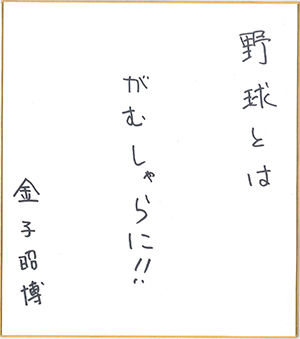 野球とは
がむしゃらに!!
金子昭博